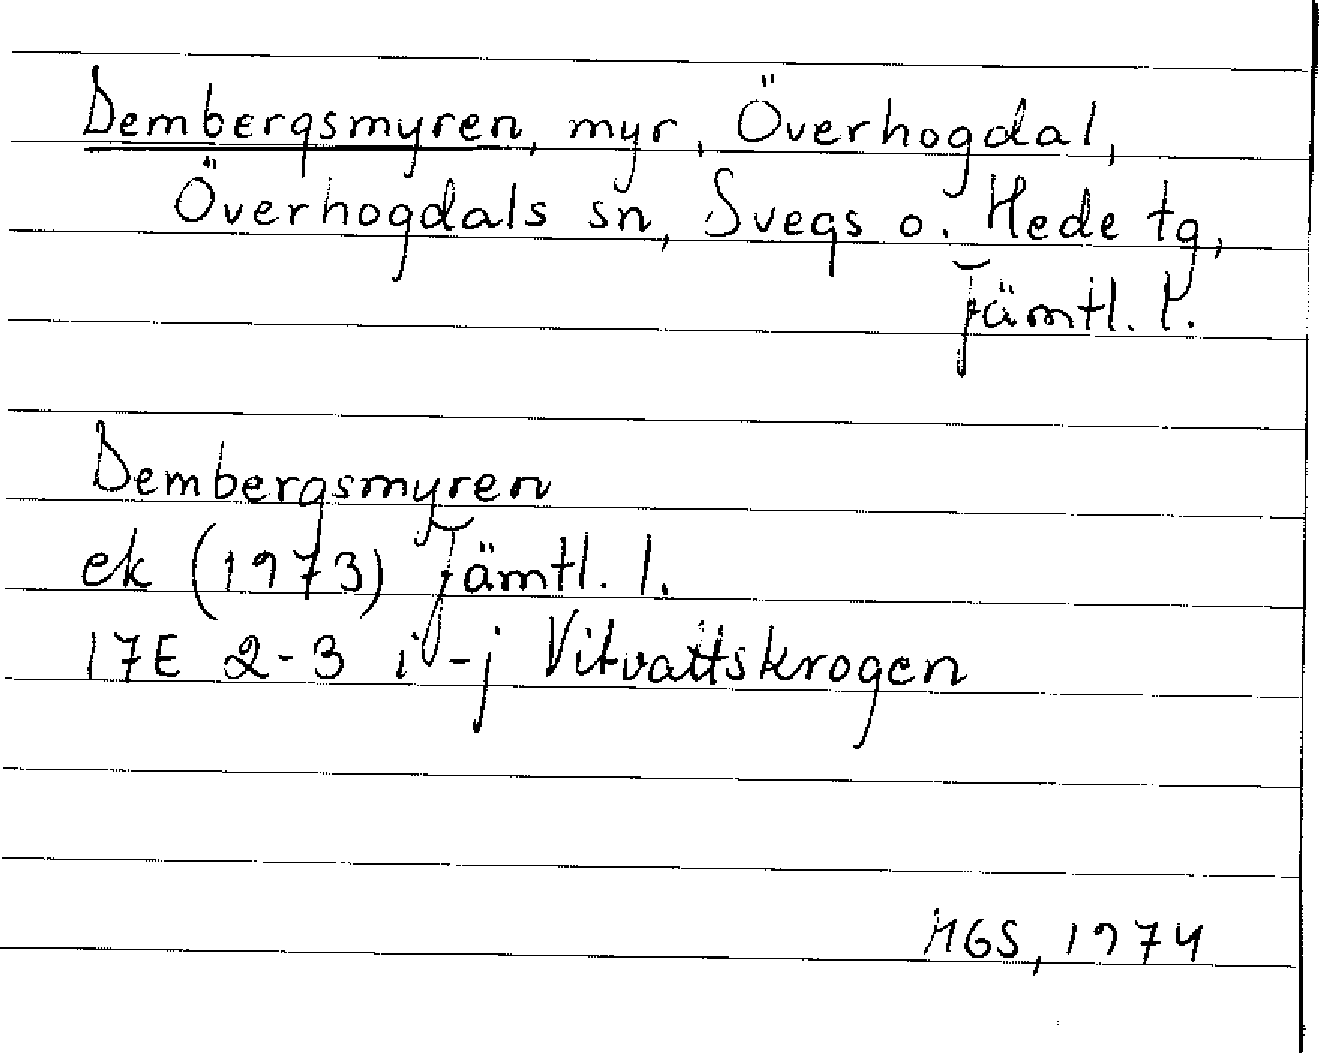 Dembergsmyren, myr, Överhogdal,
Överhogdals sn, Svegs o. Hede tg,
Jämtl. l.
Dembergsmyren
ek (1973) Jämtl. l.
17E 2-3 i-j Vitvattskrogen
MGS, 1974